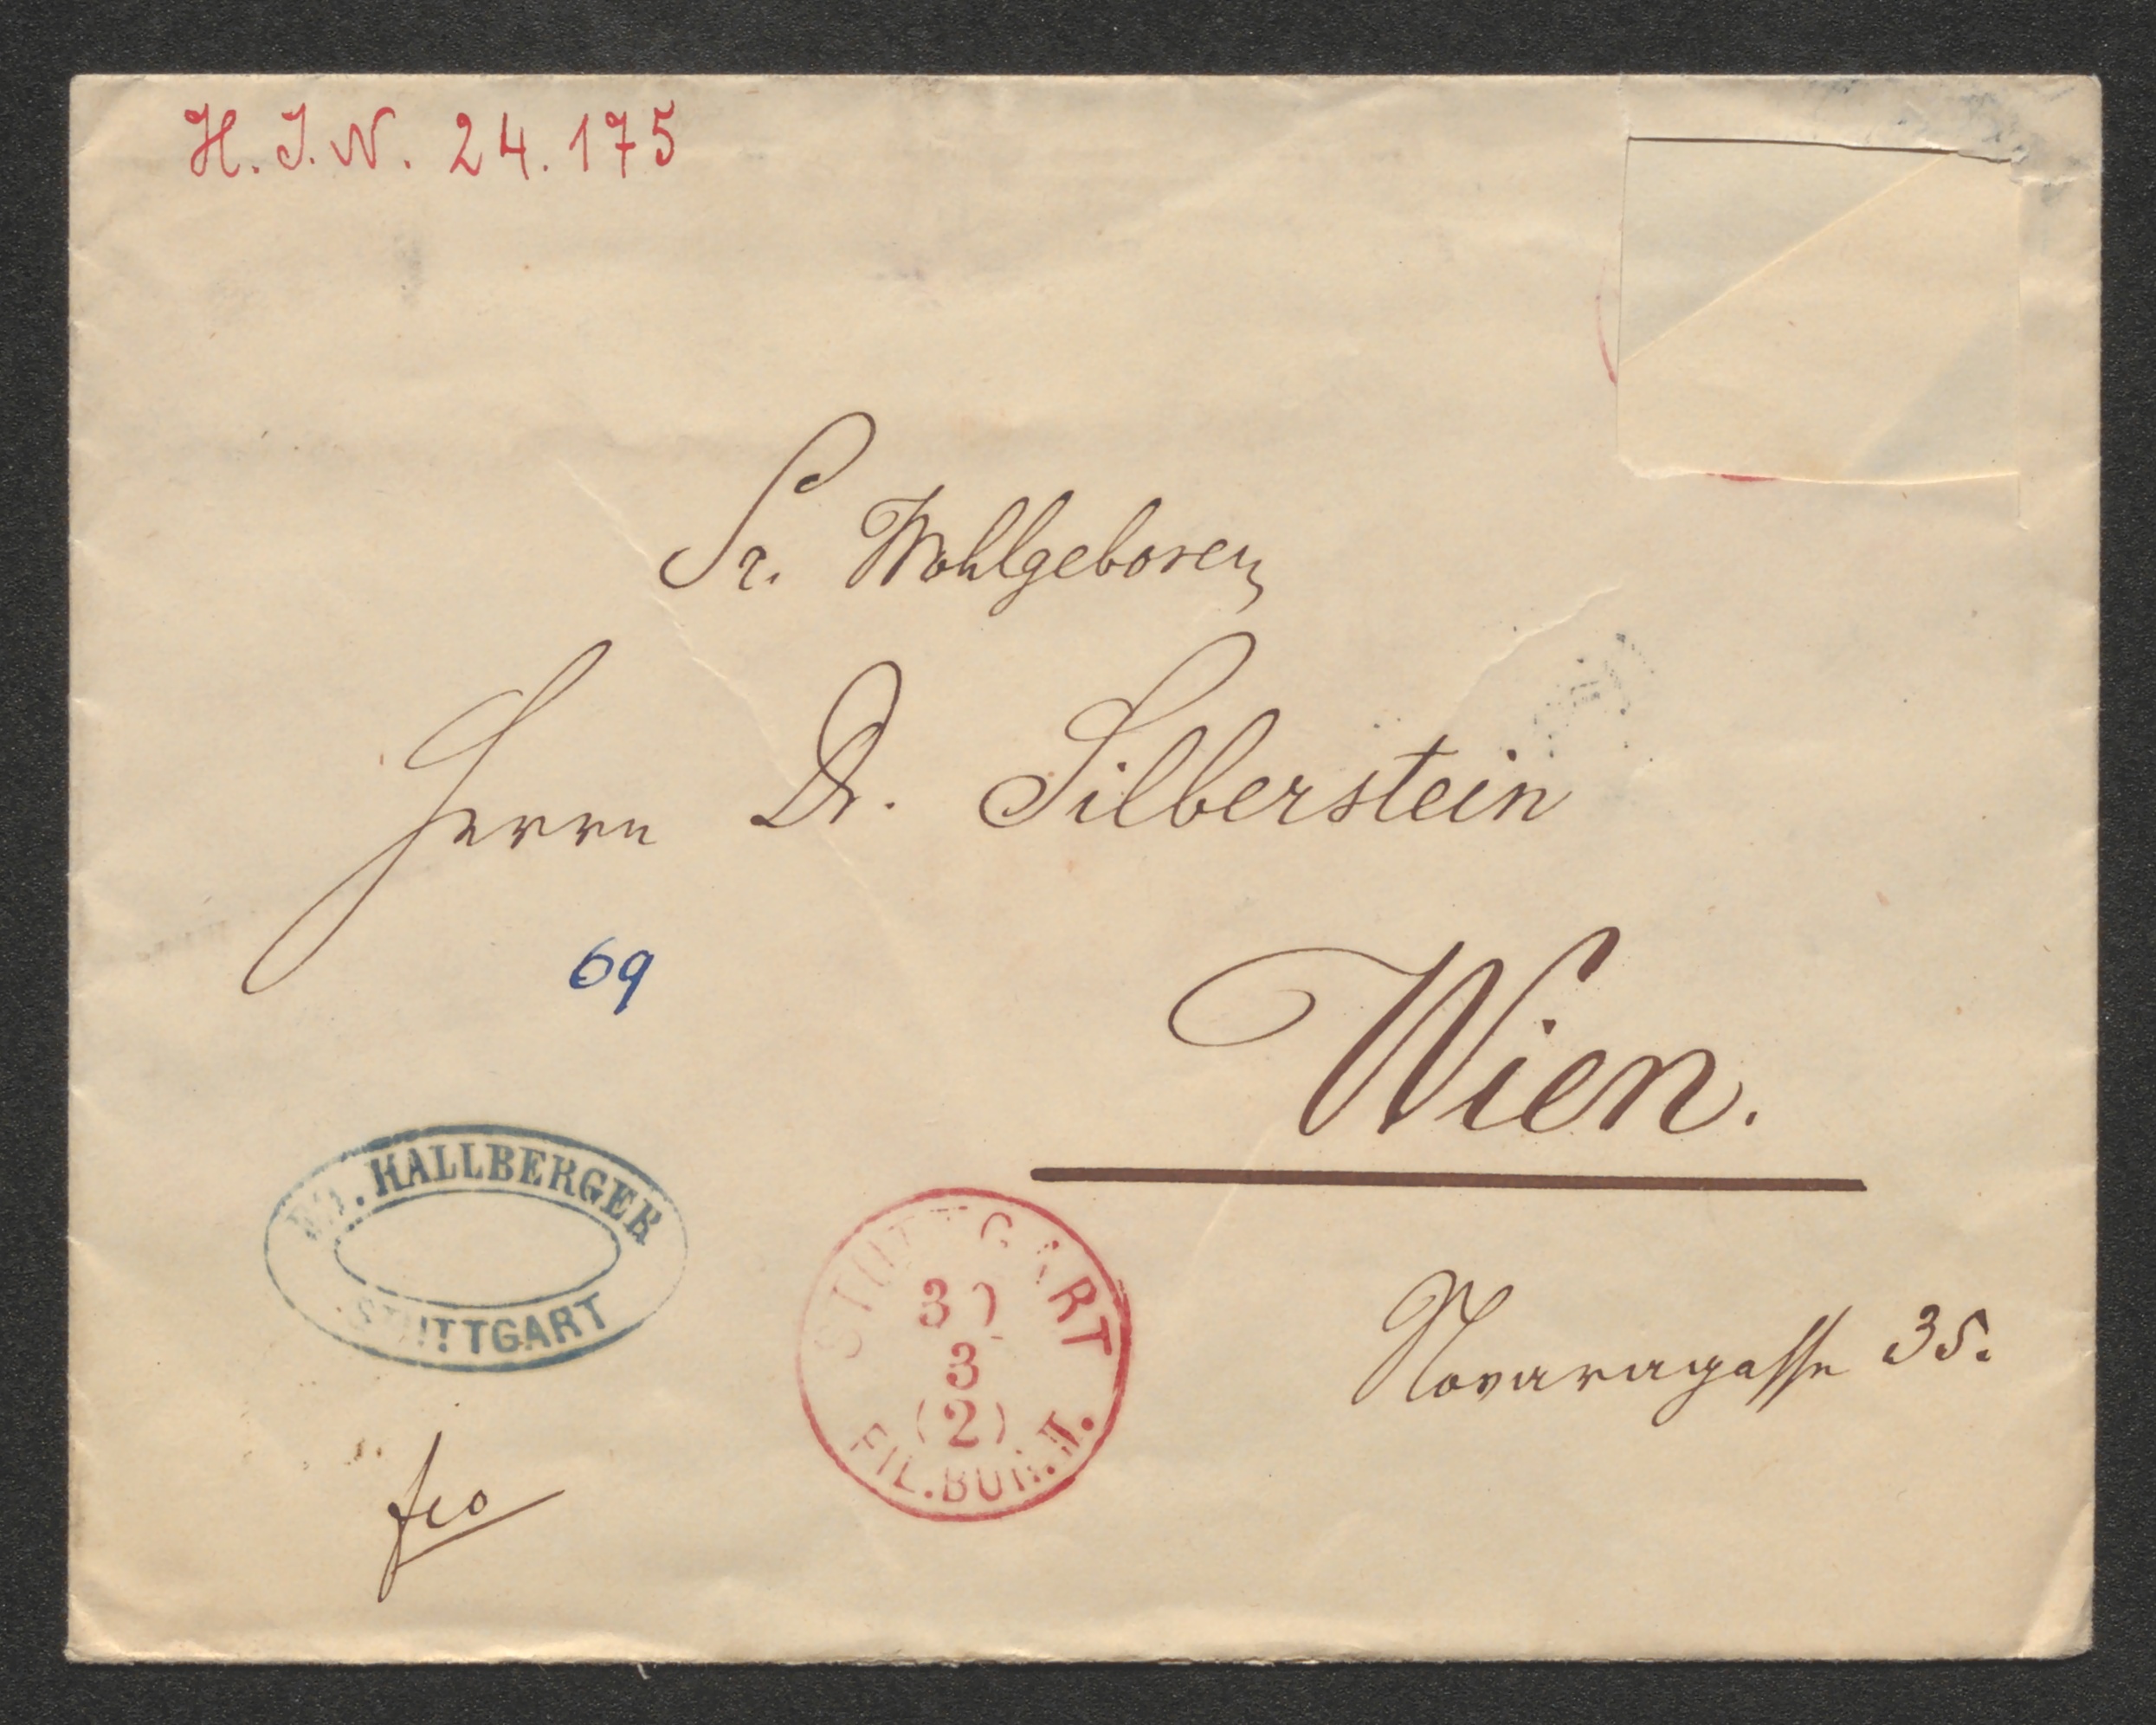 H. J. N. 24.175
Sr. Wohlgeboren
Herrn Dr. Silberstein
69
Wien.
ED. HALLBERGER
STUTTGART
STUTTGART
30
3
(2)
FIL.BUR.II.
Novaragasse 35.
fco